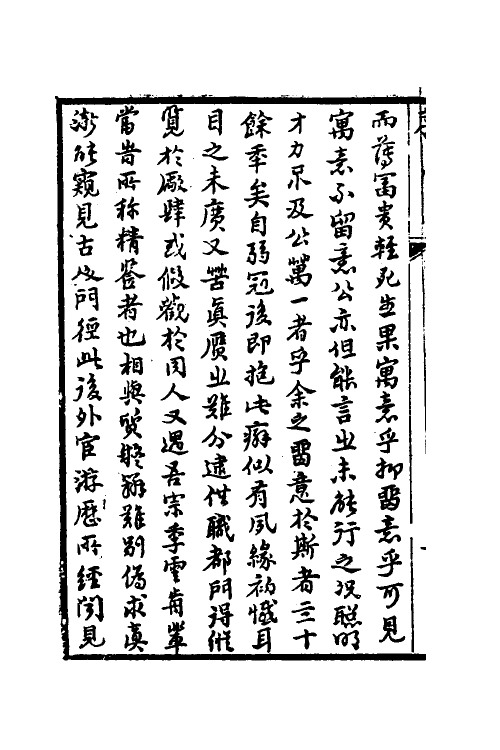 而薄富貴輕死生果寓意乎抑畱意乎可見
寓意不留意公亦但能言之未能行之況聰明
才力不及公萬一者乎余之畱意於斯者三十
餘年矣自弱冠後即抱此癖似有夙緣初憾耳
目之未廣又苦眞贋之難分逮供職都門得縱
覽於厰肆或假觀於同人又遇吾宗季雲
當昔所稱精鑒者也相與質疑辯難別僞求眞
漸能窺見古人門徑此後外官游歷所經聞見